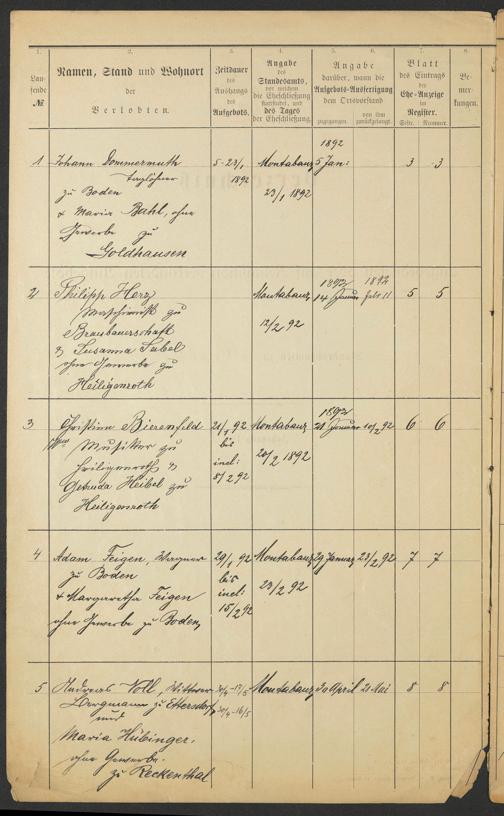 1. 2. 3. 4. 5. 6. 7. 8.
Lau-
fende
№
Namen, Stand und Wohnort
der
Verlobten.
Zeitdauer
des
Aushangs
des
Aufgebots.
Angabe
des
Standesamts,
vor welchem
die Eheschließung
stattfindet, und
des Tages
der Eheschließung.
Angabe
darüber, wann die
Aufgebots-Ausfertigung
dem Ortsvorstand
zugegangen.
von ihm
zurückgelangt.
Blatt
des Eintrags
der
Ehe-Anzeige
im
Register.
Seite. Nummer.
Be-
mer-
kungen.
1 Johann Dommermuth
Taglöhner
zu Boden
& Maria Bahl, ohne
Gewerbe zu
Goldhausen
5-23/1
1892
Montabaur
23/1 1892
1892
5 Jan:
3 3
2 Philipp Herz
Maschinist zu
Braubauerschaft
& Susanna Sabel
ohne Gewerbe zu
Heiligenroth
Montabaur
12/2 92
1892
14 Januar
1892
Febr 11
5 5
3 Christian Bierenfeld
Musiker zu
Heiligenroth &
Gertruda Heibel zu
Heiligenroth
21/1 92
bis
incl:
8/2 92
Montabaur
20/2 1892
1892
21 Januar
10/2 92
6 6
4 Adam Feigen, Wagner
zu Boden
& Margaretha Feigen
ohne Gewerbe zu Boden,
29/1 92
bis
incl:
15/2 92
Montabaur
23/2 92
29 Januar
23/2 92
7 7
5 Andreas Noll, Wittwer
Bergmann zu Ettersdorf,
und
Maria Hübinger,
ohne Gewerbe.
zu Reckenthal
30/4-17/5
30/4-16/5
Montabaur
30 April
21 Mai
8 8